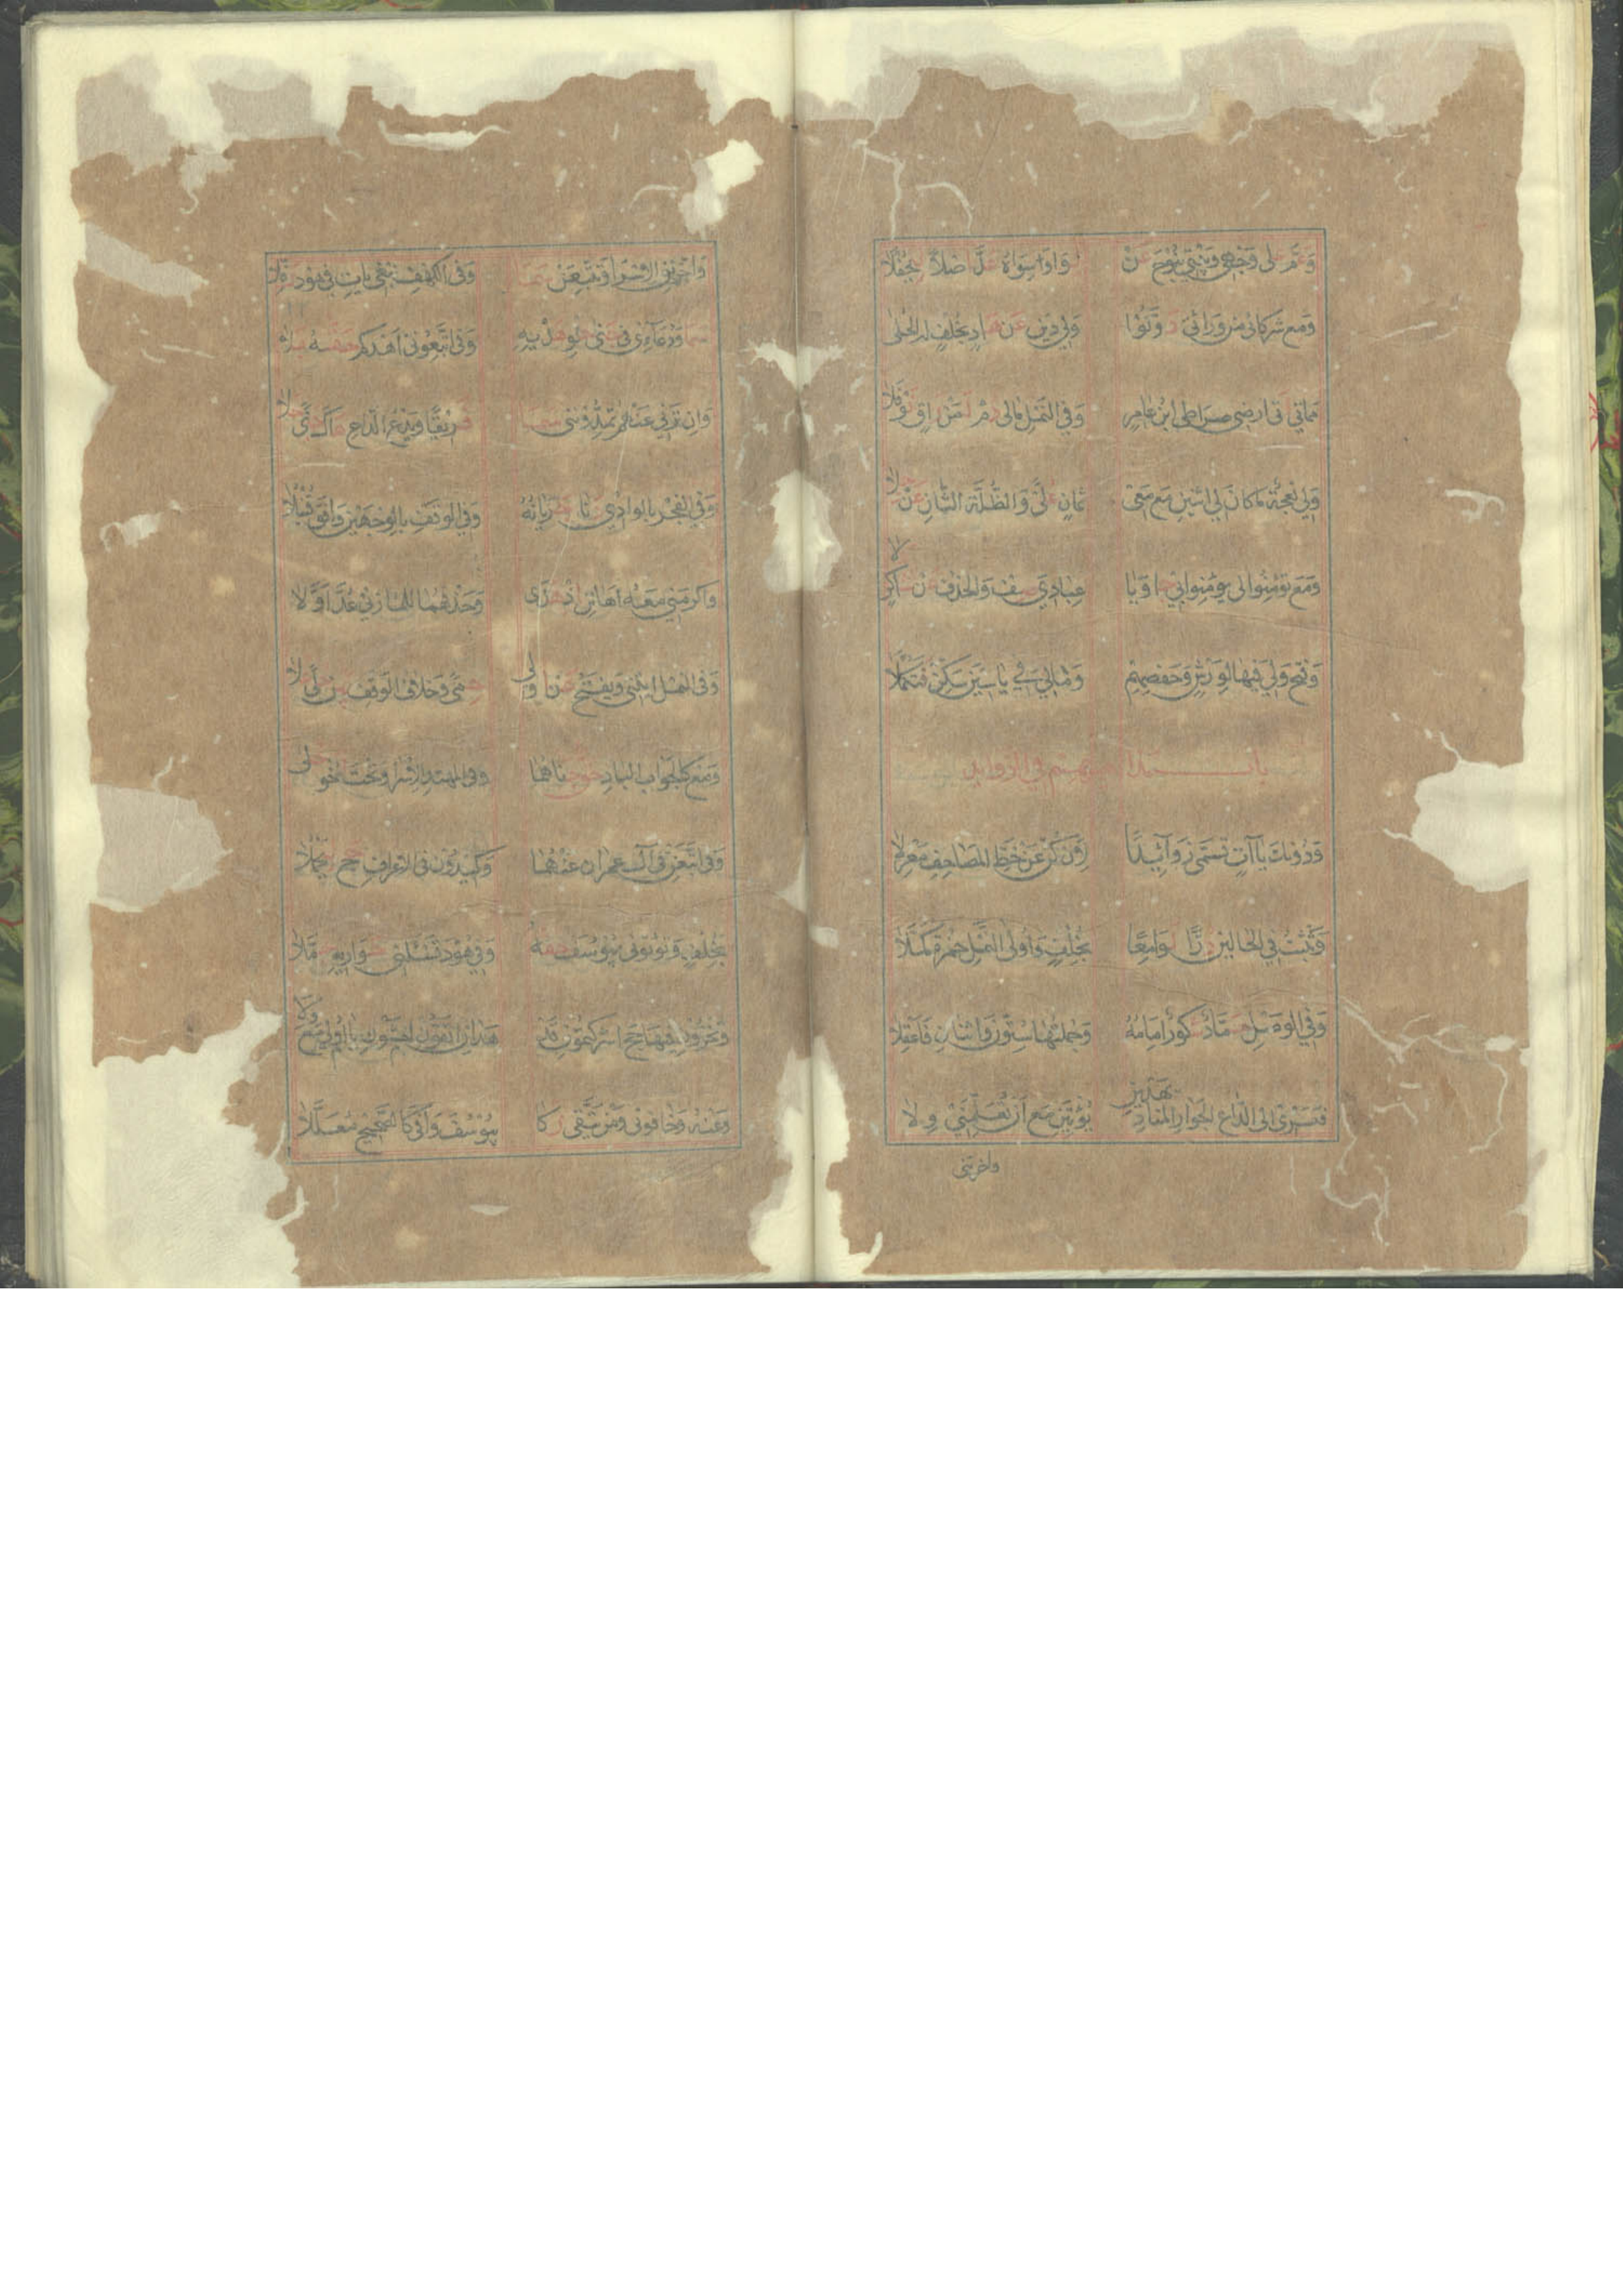 وعم على وجهى وبيتي بنوح عن لوا وسواه عد اصلا ليحفلا
ومع شركائي من ورائي دونوا ولي دين عن هاد بخلف له الحلى
مماتي اتى ارضي صراطي ابن عامر وفي النمل مالي دم لمن راق نوفلا
ولي نعجة ما كان لي اثنين مع معي ثمان على والظلة الثان عن جلا
ومع تؤمنوا لي يؤمنوا بي جا ويا عبادي صف والحذف عن شاكر دلا
وفتح ولي فيها لورش وحفصهم ومالي في ياسين سكن فتكملا
باب مذاهبهم في الزوايد
ودونك ياآت تسمى زوآئدا لان كن عن خط المصاحف معزلا
وتثبت في الحالين درا لوامعا بخلف واولى النمل حمزة كملا
وفي الوصل حماد شكور امامه وجملتها ستون واثنان فاعقلا
فيسري الى الداع الجوار المناد يهدين يؤتين مع ان تعلمني ولا
واخرتنى
واخرتني الاسرا وتتبعن سما وفي الكهف نبغي يات في هود رفلا
سما ودعآءى في جنى حلو هديه وفي اتبعوني اهدكم حقه بلا
وان ترني عنهم تمدونني سما فريقا ويدع الداع هاك جنى حلا
وفي الفجر بالوادي دنا جريانه وفي الوقف بالوجهين وافق قنبلا
واكرمني معه اهانن اذ هدى وحذفهما للمازني عد اولا
وفي النمل اتيني ويفتح عن اولي حمى وخلاف الوقف بين حلى علا
ومع كالجواب الباد حق جناهما وفي المهتد الاسرا وتحت اخو حلى
وفي اتبعن في آل عمران عنهما وكيدون في الاعراف حج ليحملا
بخلف وتوتوني بيوسف حقه وفي هود تسئلني حواريه جملا
وتخزون فيها حج اشركتمون قد هدان اتقون يا اولي اخشون مع ولا
وعنه وخافوني ومن يتقي زكا بيوسف وافى كالصحيح معللا